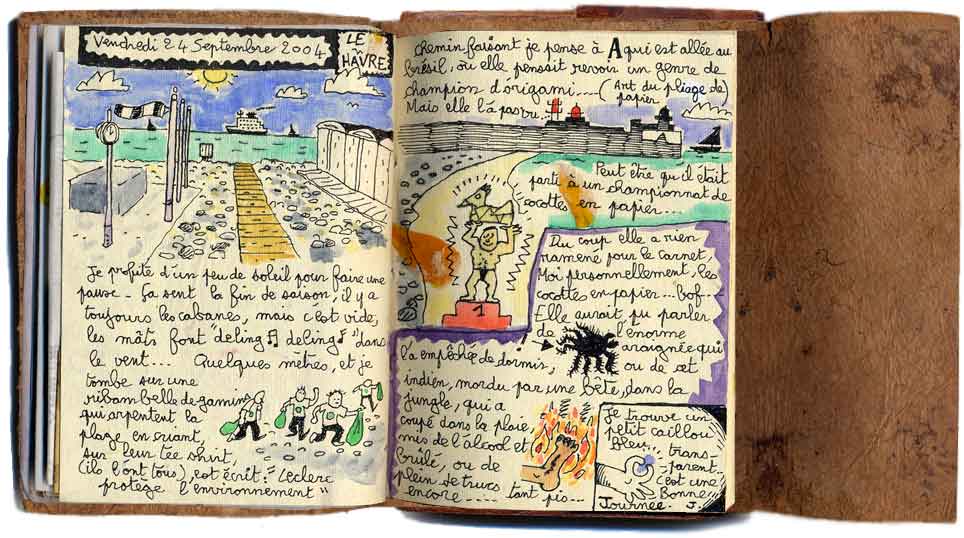 Vendredi 24 Septembre 2004
LE
HAVRE
Je profite d'un peu de soleil pour faire une
pause - Ça sent la fin de saison, il y a
toujours les cabanes, mais c'est vide,
les mâts font "deling ♫ deling ♪" dans
le vent... Quelques mètres, et je
tombe sur une
ribambelle de gamins
qui arpentent la
plage en criant,
sur leur tee shirt,
(ils l'ont tous), est écrit: "Leclerc
protège l'environnement"
Chemin faisant je pense à A qui est allée au
Brésil, où elle pensait revoir un genre de
champion d'origami.... (Art du pliage de)
papier
Mais elle l'a pas vu...
Peut être qu'il était
parti à un championnat de
cocottes en papier...
1
Du coup elle a rien
ramené pour le carnet,
Moi personnellement, les
cocottes en papier... bof...
Elle aurait pu parler
de l'énorme
araignée qui
l'a empêchée de dormir, ou de cet
indien, mordu par une bête, dans la
jungle, qui a
coupé dans la plaie,
mis de l'alcool et
brûlé, ou de
plein de trucs
encore.... tant pis...
Je trouve un
petit caillou
Bleu..
trans-
-parent..
c'est une
Bonne
Journée. J.